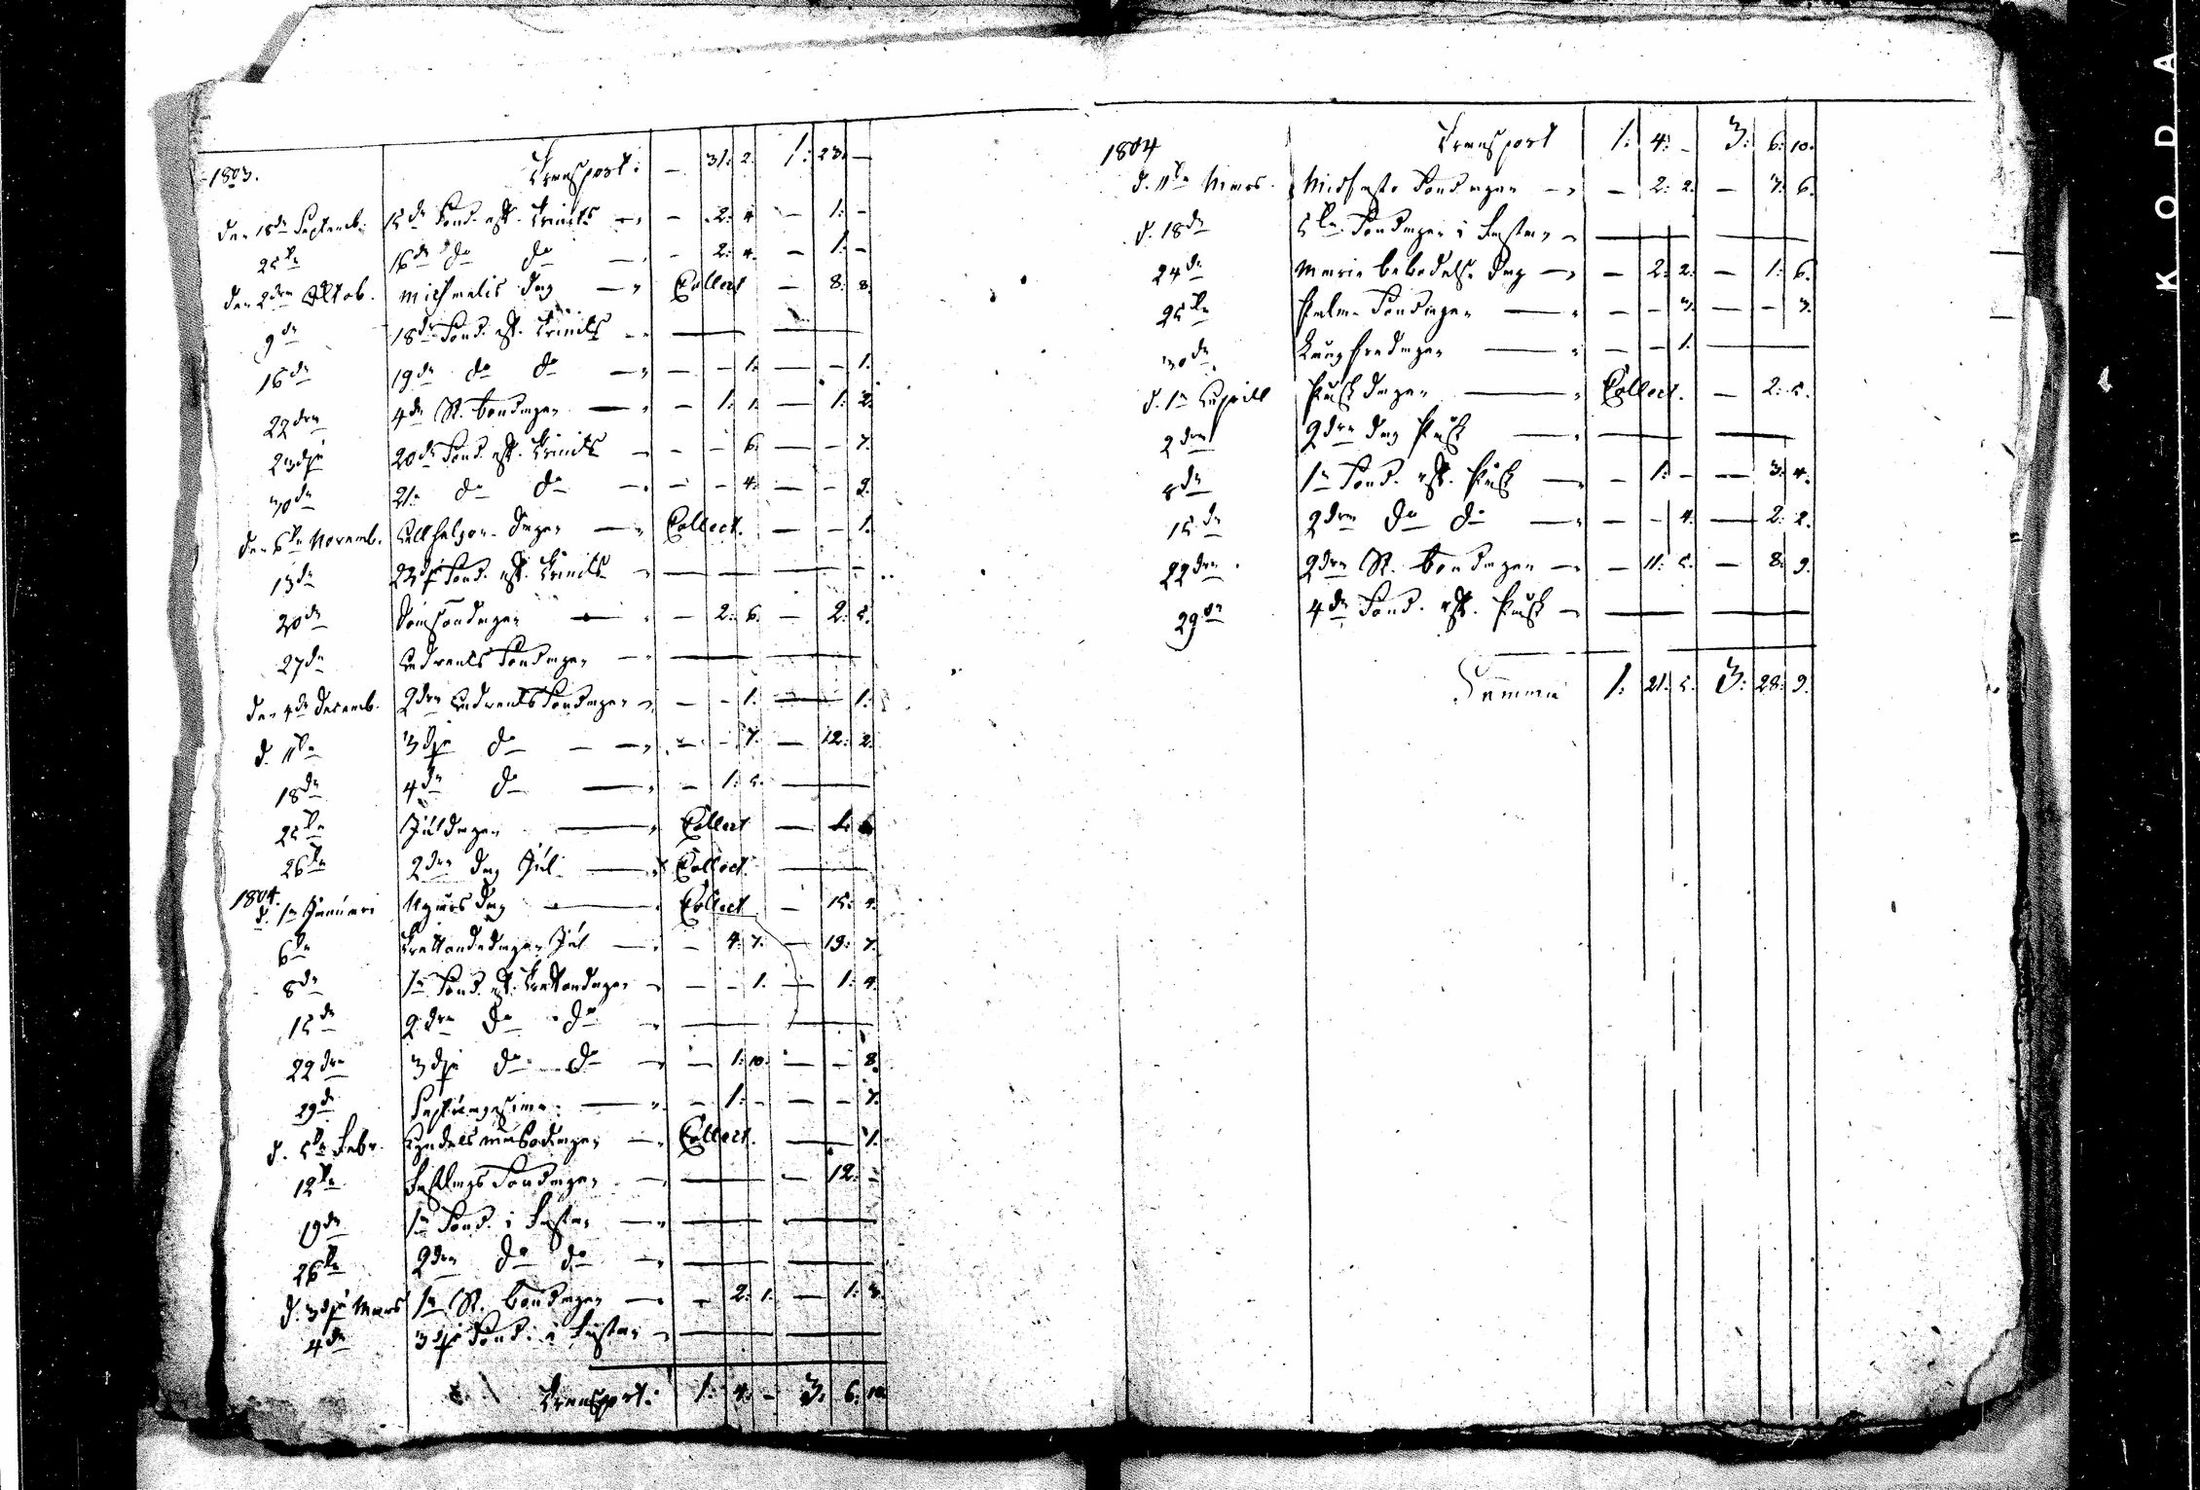 1803. Transport: — 31: 2. 1: 23: —
den 18de Septemb: 15de Sönd. eft. Trinits — „ — 2: 4. — 1: —
25te 16de do do — „ — 2: 4. — 1: —
den 2dra Oktob. Michaelis dag — „ Collect — 8: 8.
9de 18de Sönd. eft. Trinits — „ — —
16de 19de do do — „ — — 1. — — 1.
22dra 4de St. böndagen — „ — 1: 1. — 1: 2.
23dje 20de Sönd. eft. Trinits — „ — — 6. — — 7.
30de 21a do do — „ — — 4. — — 9.
den 6te Novemb. Allhelgona dagen — „ Collect. — — 1.
13de 23dje Sönd. eft. Trinits — „ — —
20de Domsöndagen — „ — 2: 6. — 2: 5.
27de Advents Söndagen — „ — —
den 4de Decemb. 2dra Advents Söndagen — „ — — 1. — 1.
d. 11te 3dje do — „ — — 7. — 12: 2.
18de 4de do — „ — 1: 5. —
25te Juldagen — „ Collect —
26te 2dra dag Jul — „ Collect. —
1804.
d. 1a Januari Nyårs dag — „ Collect — 15: 4.
6te Trettondedagen Jul — „ — 4: 7. — 19: 7.
8de 1a Sönd. eft. Trettondagen — „ — — 1. — 1: 4.
15de 2dra do do — „ — —
22dra 3dje do do — „ — 1: 10. — — 8.
29de Septuagesima — „ — 1: — — — 7.
d. 5te Febr. Kyndelsmässodagen — „ Collect. — 1.
12te Fastlags Söndagen — „ — — 12: —
19de 1a Sönd. i Fastan — „ — —
26te 2dra do do — „ — —
d. 3dje Mars 1a St. böndagen — „ — 2: 1. — 1: 3.
4de 3dje Sönd. i Fastan — „ — —
Transport: 1: 4: — 3: 6: 10.
1804 Transport 1: 4: — 3: 6: 10.
d. 11te Mars. Midfasto Söndagen — „ — 2: 2. — 3: 6.
d. 18de 5te Söndagen i Fastan — „ — —
24de Mariæ bebådelse dag — „ — 2: 2. — 1: 6.
25te Palm Söndagen — „ — — 3. — — 3.
30de Långfredagen — „ — — 1. —
d. 1a Aprill Påskdagen — „ Collect. — 2: 5.
2dra 2dra dag Påsk — „ — —
8de 1a Sönd. eft. Påsk — „ — 1: — — 3: 4.
15de 2dra do do — „ — — 4. — 2: 2.
22dra 2dra St. böndagen — „ — 11: 5. — 8: 9.
29de 4de Sönd. eft. Påsk — — —
Summa 1: 21: 5. 3: 28: 9.
KODA